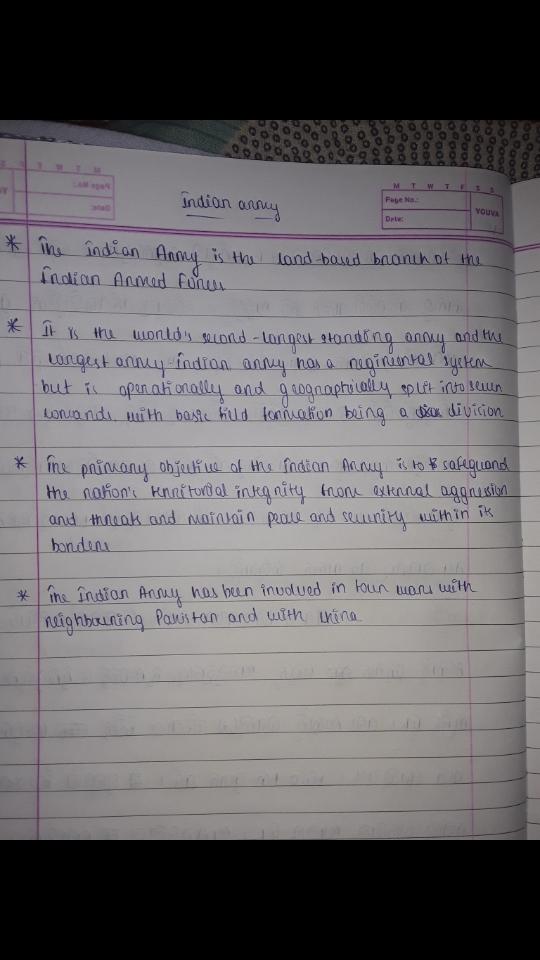 M T W T F S S
Page No.:
Date:
YOUVA
Indian army
* The indian Army is the land-based branch of the
Indian Armed Forces
* It is the world's second-largest standing army and the
largest army. Indian army has a regimental system
but is operationally and geographically split into seven
comands, with basic field formation being a division
* The primary objective of the Indian Army is to safeguard
the nation's territorial integrity from external aggression
and threats and maintain peace and security within its
borders
* The Indian Army has been involved in four wars with
neighbouring Pakistan and with china